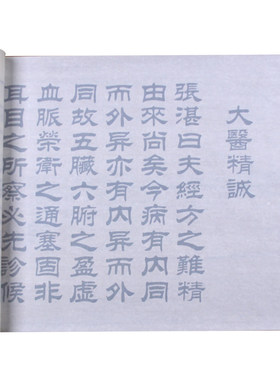 大醫精誠
張湛曰夫經方之難精
由來尚矣今病有内同
而外异亦有内异而外
同故五臟六腑之盈虛
血脈榮衛之通塞固非
耳目之所察必先診候